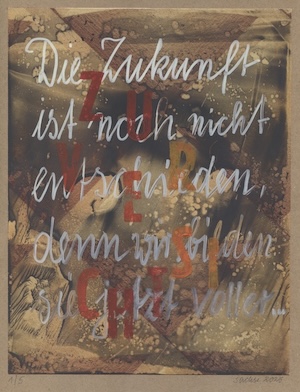 Die Zukunft
ist noch nicht
entschieden,
denn wir bilden
sie jetzt voller...
ZU
VER
SI
CH
1/5